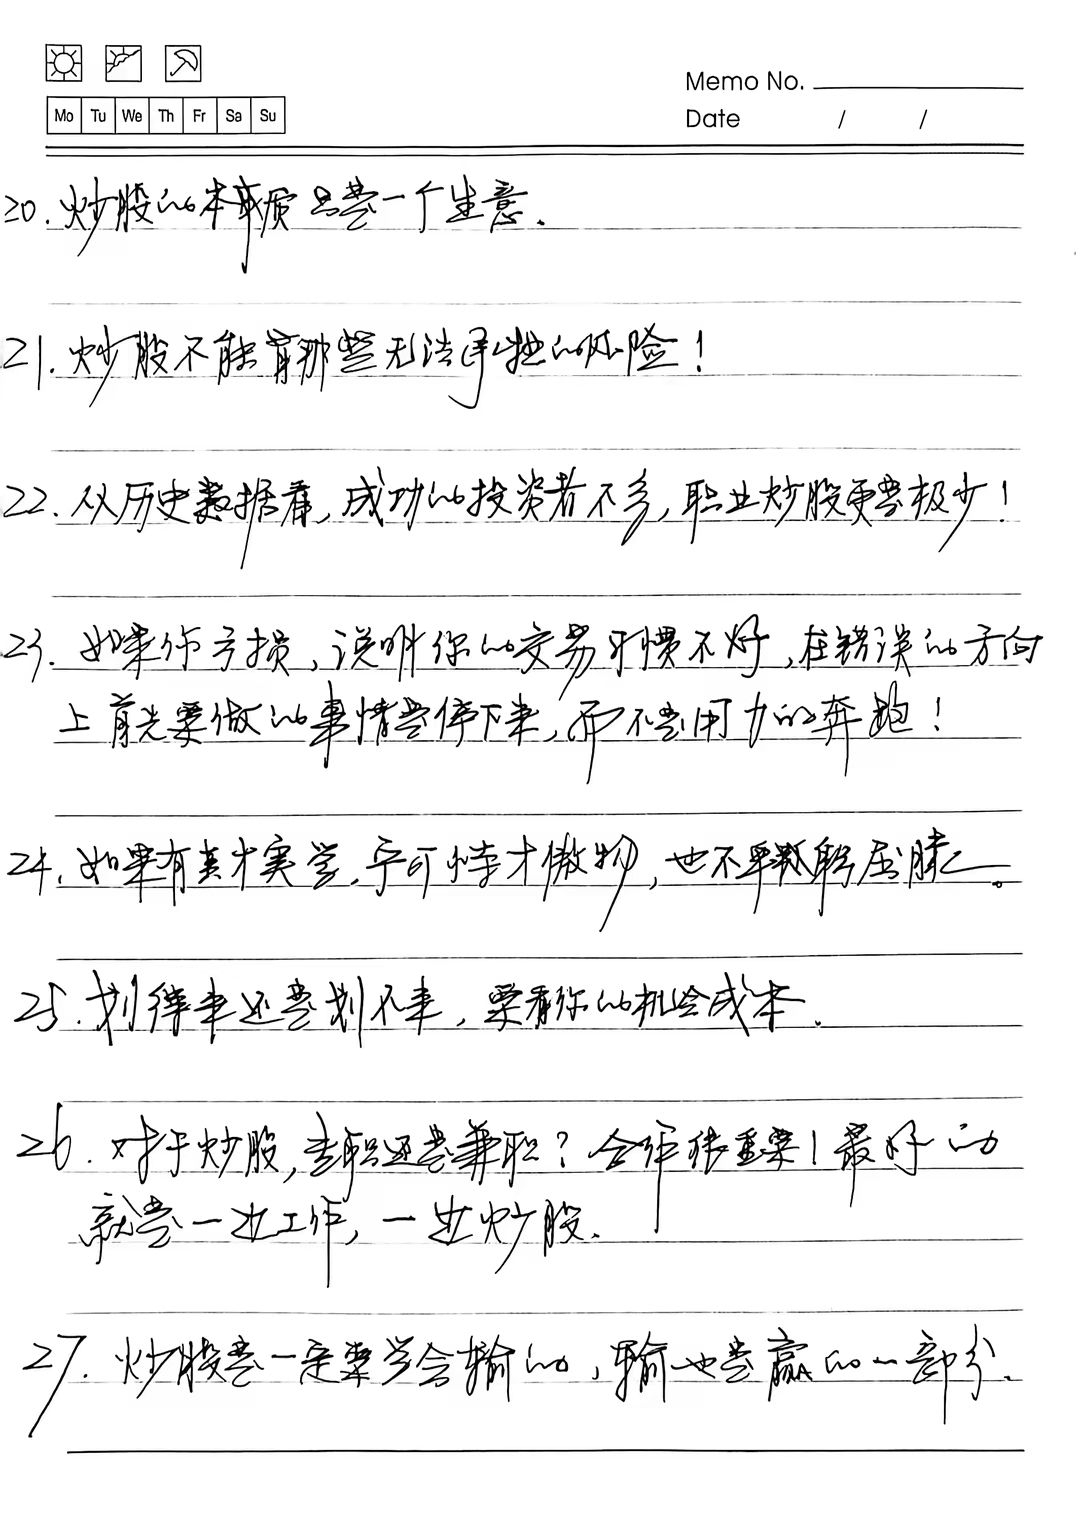 Memo No.
Mo Tu We Th Fr Sa Su
Date / /
20. 炒股的本质只是一个生意.
21. 炒股不能有那些无法承担的风险!
22. 从历史数据看, 成功的投资者不多, 职业炒股更是极少!
23. 如果你亏损, 说明你的交易习惯不好, 在错误的方向
上首先要做的事情是停下来, 而不是用力的奔跑!
24. 如果有真才实学, 宁可恃才傲物, 也不卑躬屈膝。
25. 划得来还是划不来, 要看你的机会成本.
26. 对于炒股, 专职还是兼职? 合作很重要! 最好的
就是一边工作, 一边炒股.
27. 炒股是一定要学会输的, 输也是赢的一部分.